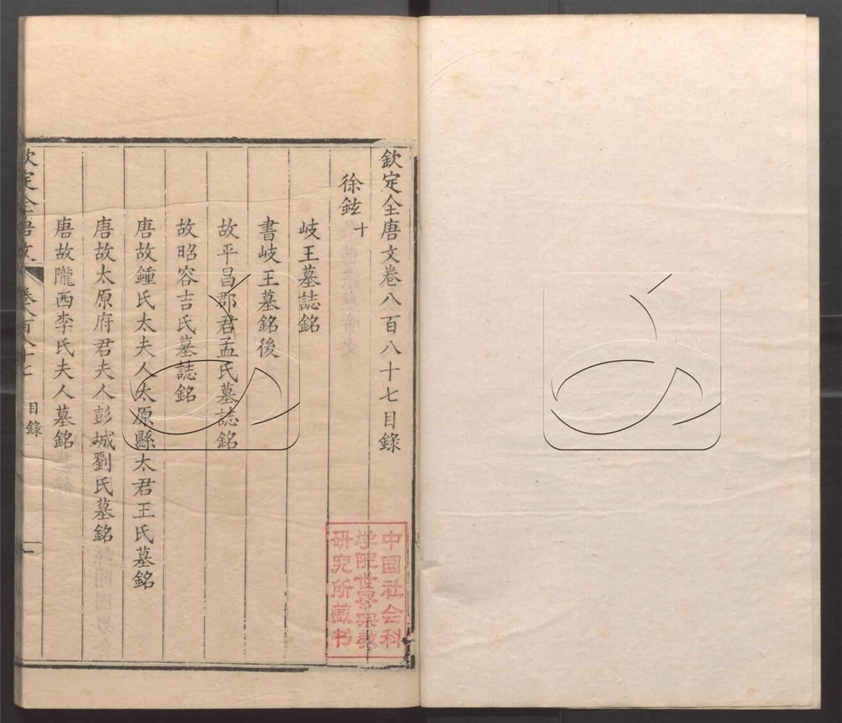 欽定全唐文卷八百八十七目錄
徐鉉十
岐王墓誌銘
書岐王墓銘後
故平昌郡君孟氏墓誌銘
故昭容吉氏墓誌銘
唐故鍾氏太夫人太原縣太君王氏墓銘
唐故太原府君夫人彭城劉氏墓銘
唐故隴西李氏夫人墓銘
欽定全唐文
卷八百八十七
目錄
一
中國社会科
学院世界宗教
研究所藏书